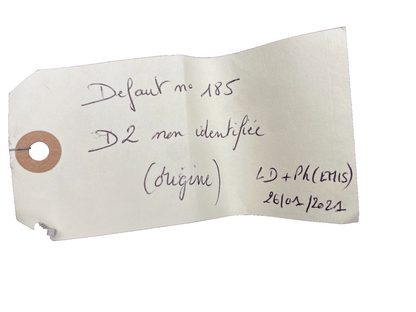 Defaut n° 185
D2 non identifiée
(origine)
LD + Ph (EMIS)
26/01/2021